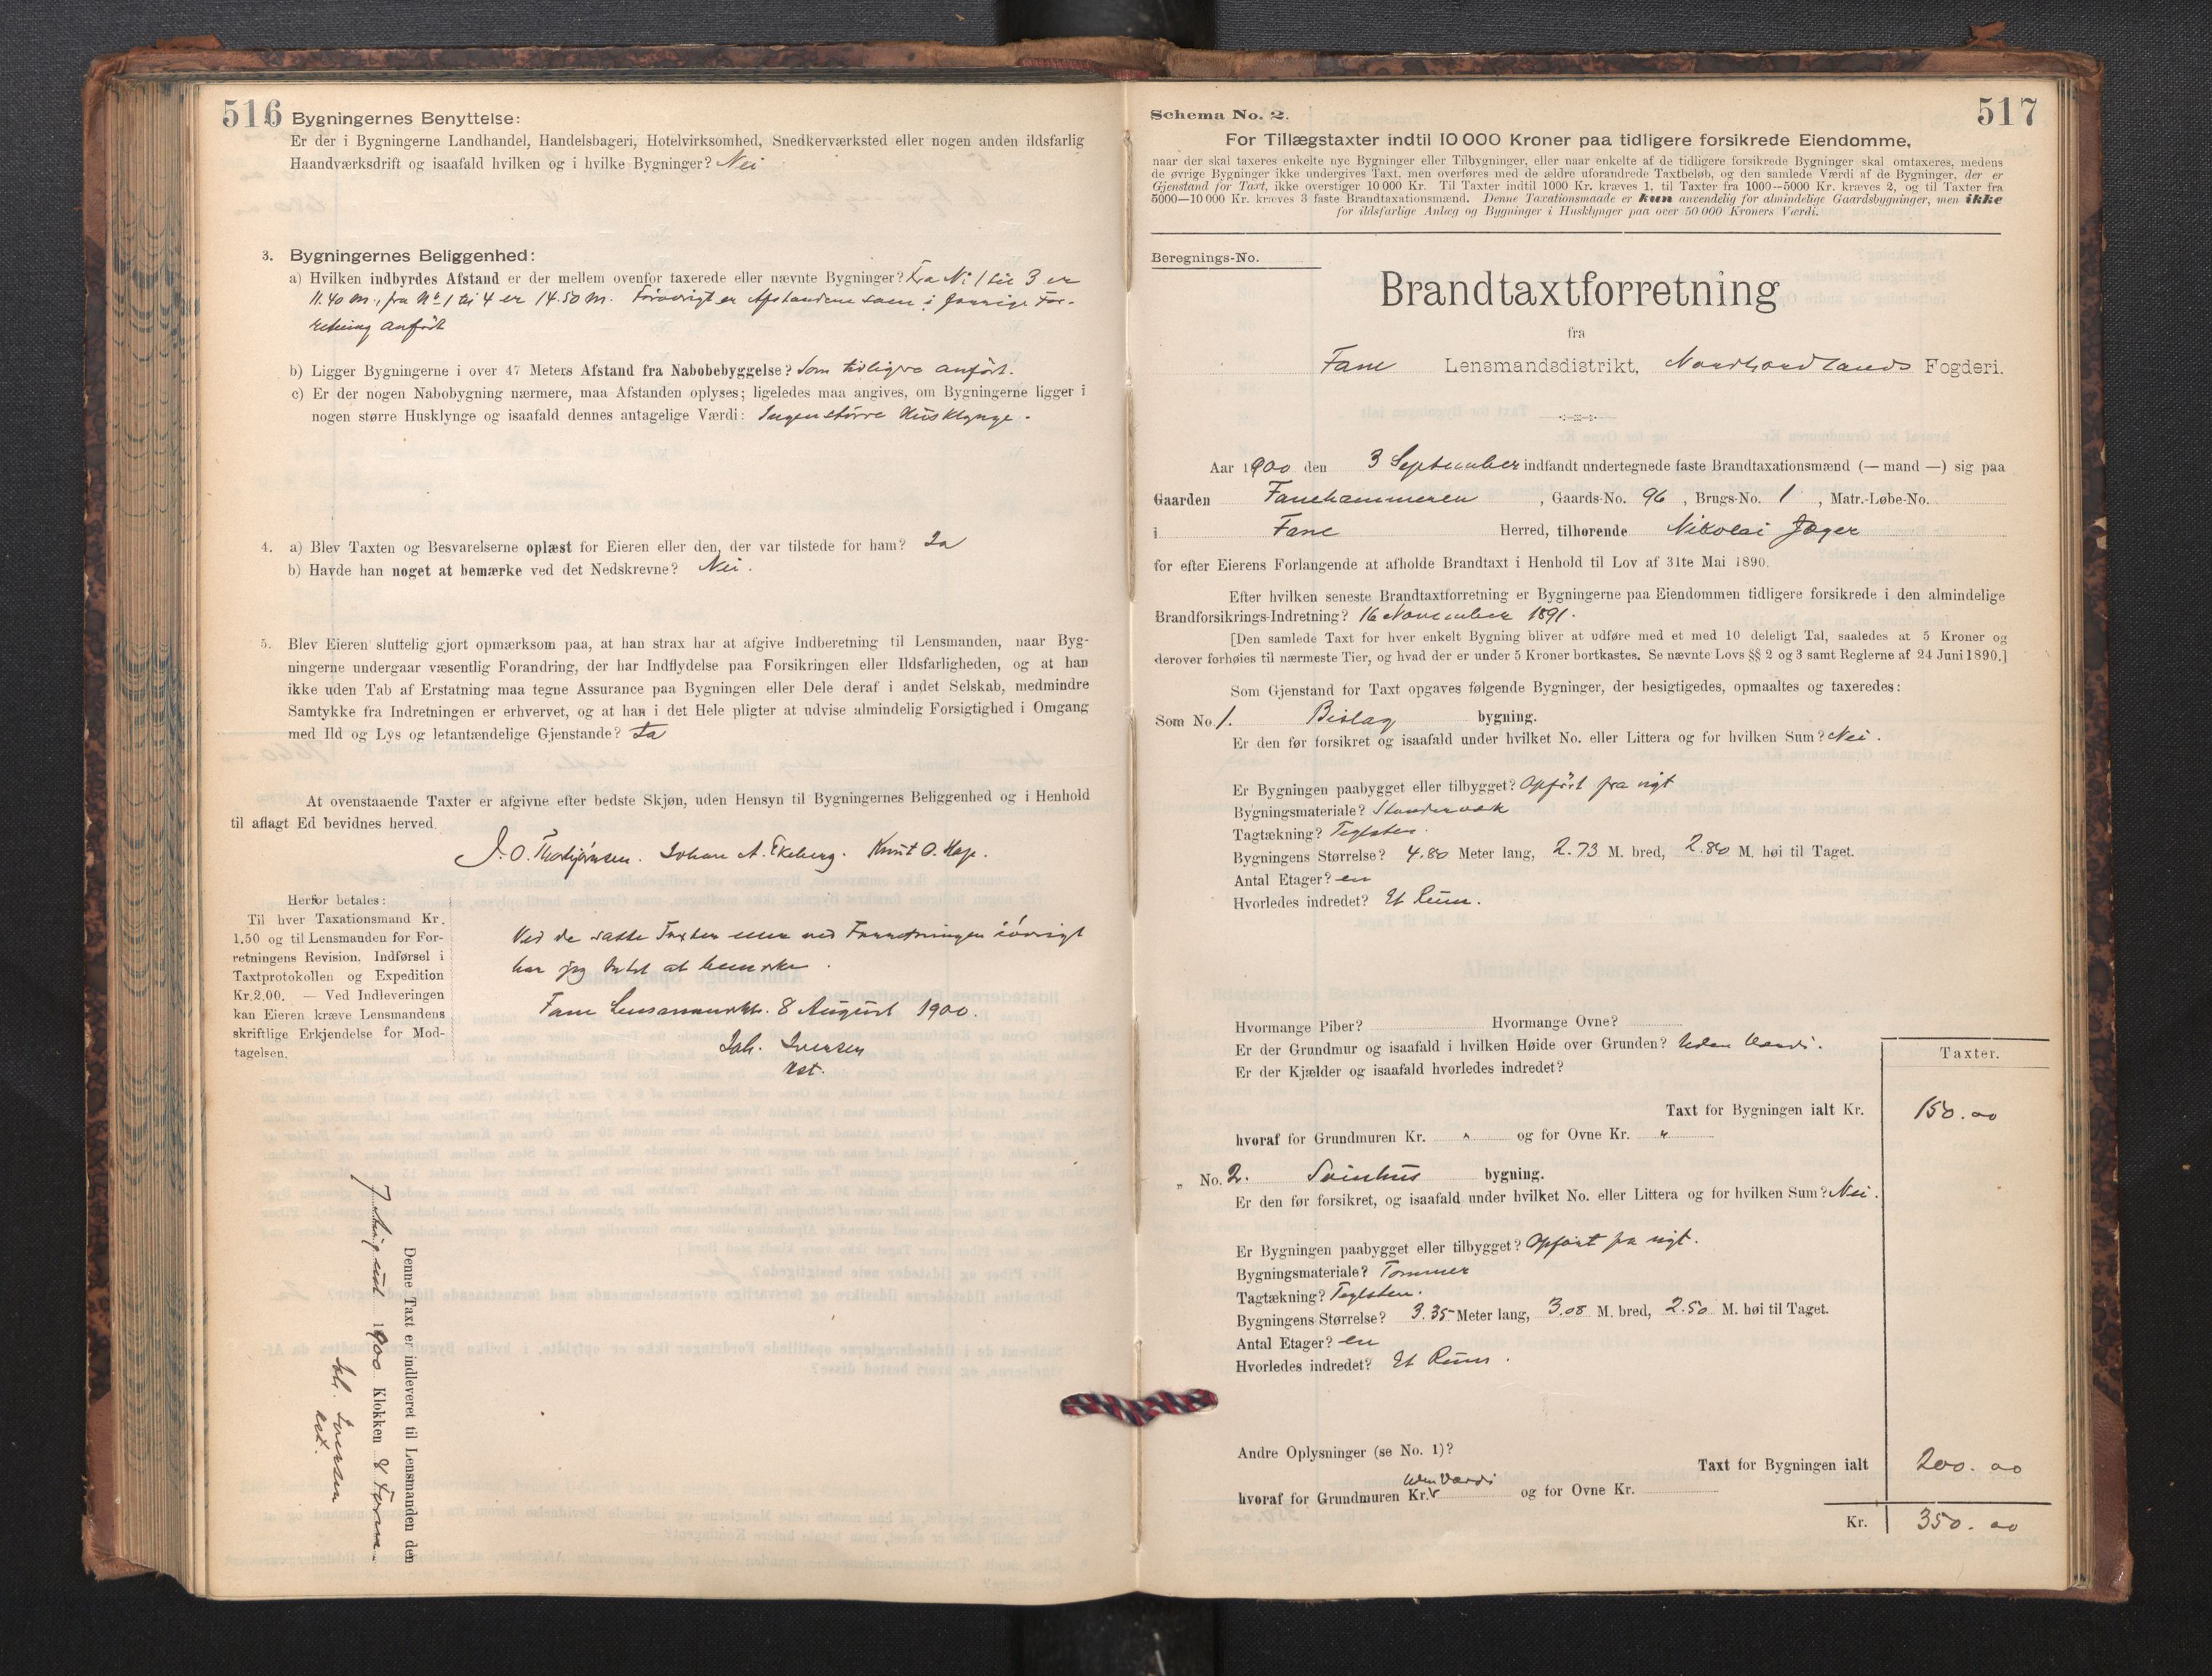 516
Bygningernes Benyttelse:
Er der i Bygningerne Landhandel, Handelsbageri, Hotelvirksomhed, Snedkerværksted eller nogen anden ildsfarlig
Haandværksdrift og isaafald hvilken og i hvilke Bygninger? Nei
3. Bygningernes Beliggenhed:
a) Hvilken indbyrdes Afstand er der mellem ovenfor taxerede eller nævnte Bygninger? Fra No 1 til 3 er
11.40 m., fra No 1 til 4 er 14.50 m. Forøvrigt er Afstandene som i forrige For-
retning anført
b) Ligger Bygningerne i over 47 Meters Afstand fra Nabobebyggelse? Som tidligere anført.
c) Er der nogen Nabobygning nærmere, maa Afstanden oplyses; ligeledes maa angives, om Bygningerne ligger i
nogen større Husklynge og isaafald dennes antagelige Værdi: Ingen større Husklynge.
4. a) Blev Taxten og Besvarelserne oplæst for Eieren eller den, der var tilstede for ham? Ja
b) Havde han noget at bemærke ved det Nedskrevne? Nei.
5. Blev Eieren sluttelig gjort opmærksom paa, at han strax har at afgive Indberetning til Lensmanden, naar Byg-
ningerne undergaar væsentlig Forandring, der har Indflydelse paa Forsikringen eller Ildsfarligheden, og at han
ikke uden Tab af Erstatning maa tegne Assurance paa Bygningen eller Dele deraf i andet Selskab, medmindre
Samtykke fra Indretningen er erhvervet, og at han i det Hele pligter at udvise almindelig Forsigtighed i Omgang
med Ild og Lys og letantændelige Gjenstande? Ja
At ovenstaaende Taxter er afgivne efter bedste Skjøn, uden Hensyn til Bygningernes Beliggenhed og i Henhold
til aflagt Ed bevidnes herved.
J. O. Thorbjørnsen. Johan A. Ekeberg. Knut O. Hop.
Herfor betales:
Til hver Taxationsmand Kr.
1.50 og til Lensmanden for For-
retningens Revision, Indførsel i
Taxtprotokollen og Expedition
Kr. 2.00. — Ved Indleveringen
kan Eieren kræve Lensmandens
skriftlige Erkjendelse for Mod-
tagelsen.
Ved de satte Taxter eller ved Forretningen iøvrigt
har jeg Intet at bemærke.
Fane Lensmannsktr. 8 August 1900.
Joh. Iversen
cst.
Denne Taxt er indleveret til Lensmanden den
7 August 1900 Klokken 8 Form
Joh. Iversen
cst.
517
Schema No. 2.
For Tillægstaxter indtil 10 000 Kroner paa tidligere forsikrede Eiendomme,
naar der skal taxeres enkelte nye Bygninger eller Tilbygninger, eller naar enkelte af de tidligere forsikrede Bygninger skal omtaxeres, medens
de øvrige Bygninger ikke undergives Taxt, men overføres med de ældre uforandrede Taxtbeløb, og den samlede Værdi af de Bygninger, der er
Gjenstand for Taxt, ikke overstiger 10 000 Kr. Til Taxter indtil 1000 Kr. kræves 1, til Taxter fra 1000—5000 Kr. kræves 2, og til Taxter fra
5000—10 000 Kr. kræves 3 faste Brandtaxationsmænd. Denne Taxationsmaade er kun anvendelig for almindelige Gaardsbygninger, men ikke
for ildsfarlige Anlæg og Bygninger i Husklynger paa over 50 000 Kroners Værdi.
Beregnings-No.
Brandtaxtforretning
fra
Fane Lensmandsdistrikt, Nordhordlands Fogderi.
Aar 1900 den 3 September indfandt undertegnede faste Brandtaxationsmænd (— mand —) sig paa
Gaarden Fanehammeren, Gaards-No. 96, Brugs-No. 1, Matr.-Løbe-No.
i Fane Herred, tilhørende Nikolai Jæger
for efter Eierens Forlangende at afholde Brandtaxt i Henhold til Lov af 31te Mai 1890.
Efter hvilken seneste Brandtaxtforretning er Bygningerne paa Eiendommen tidligere forsikrede i den almindelige
Brandforsikrings-Indretning? 16 November 1891.
[Den samlede Taxt for hver enkelt Bygning bliver at udføre med et med 10 deleligt Tal, saaledes at 5 Kroner og
derover forhøies til nærmeste Tier, og hvad der er under 5 Kroner bortkastes. Se nævnte Lovs §§ 2 og 3 samt Reglerne af 24 Juni 1890.]
Som Gjenstand for Taxt opgaves følgende Bygninger, der besigtigedes, opmaaltes og taxeredes:
Som No 1. Bislag bygning.
Er den før forsikret og isaafald under hvilket No. eller Littera og for hvilken Sum? Nei.
Er Bygningen paabygget eller tilbygget? Opført fra nyt
Bygningsmateriale? Standerværk
Tagtækning? Teglsten.
Bygningens Størrelse? 4.80 Meter lang, 2.73 M. bred, 2.80 M. høi til Taget.
Antal Etager? en
Hvorledes indredet? Et Rum.
Hvormange Piber? Hvormange Ovne?
Er der Grundmur og isaafald i hvilken Høide over Grunden? Uden Værdi.
Er der Kjælder og isaafald hvorledes indredet?
Taxter.
Taxt for Bygningen ialt Kr. 150.00
hvoraf for Grundmuren Kr. " og for Ovne Kr. "
„ No. 2. Svinhus bygning.
Er den før forsikret, og isaafald under hvilket No. eller Littera og for hvilken Sum? Nei.
Er Bygningen paabygget eller tilbygget? Opført fra nyt.
Bygningsmateriale? Tømmer
Tagtækning? Teglsten.
Bygningens Størrelse? 3.35 Meter lang, 3.08 M. bred, 2.50 M. høi til Taget.
Antal Etager? en
Hvorledes indredet? Et Rum.
Andre Oplysninger (se No. 1)?
Taxt for Bygningen ialt 200.00
hvoraf for Grundmuren Kr. Uden Værdi og for Ovne Kr.
Kr. 350.00